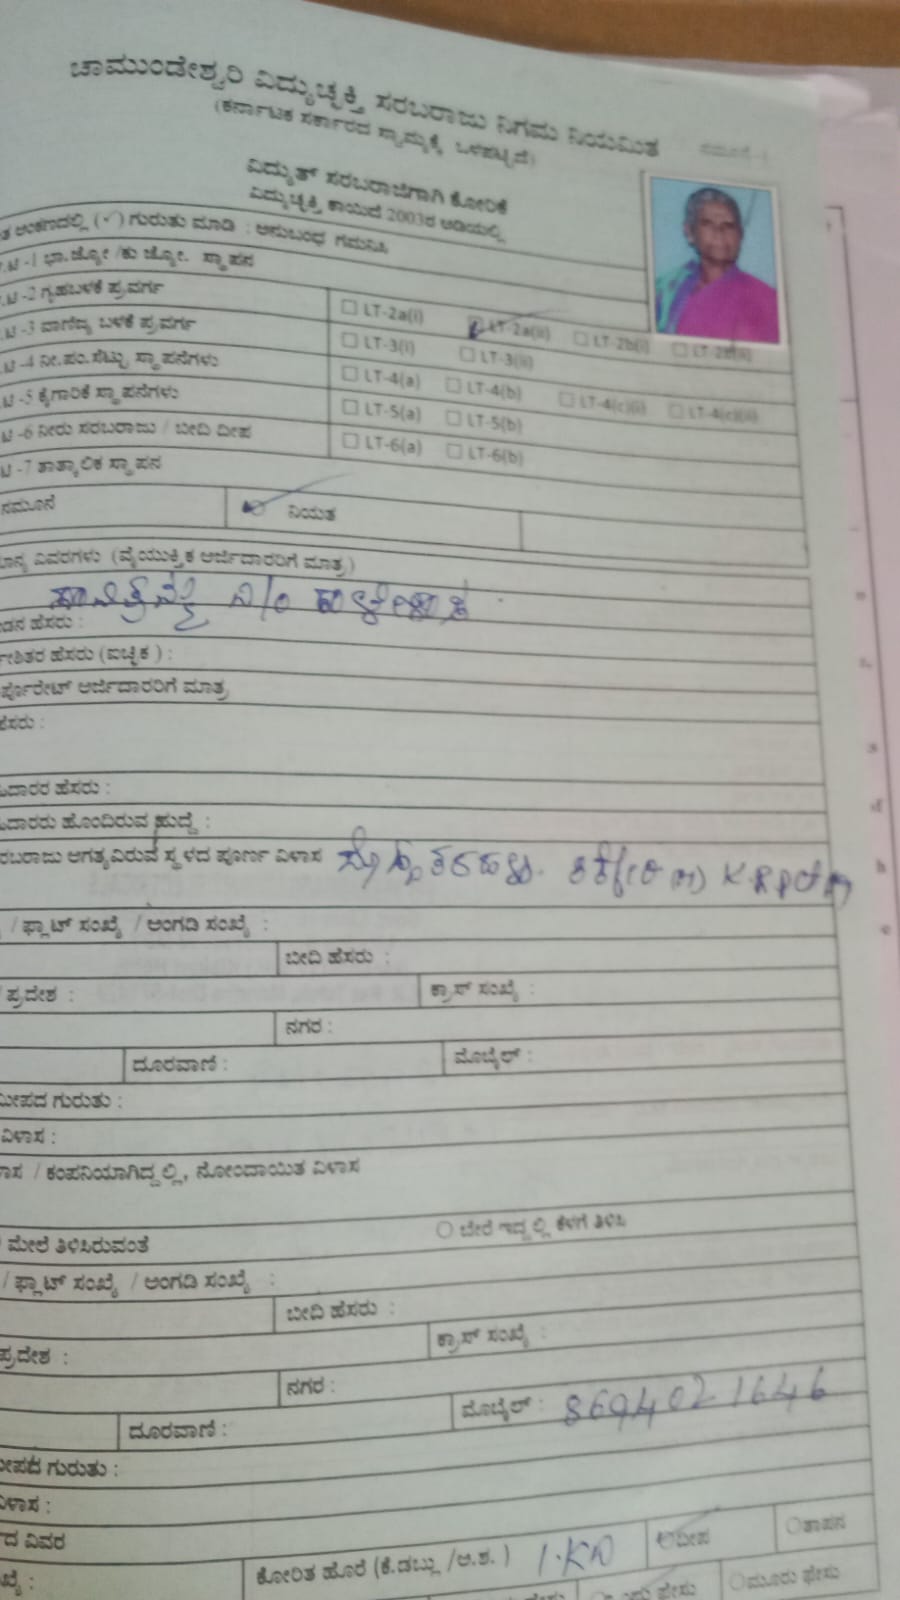 ಚಾಮುಂಡೇಶ್ವರಿ ವಿದ್ಯುಚ್ಛಕ್ತಿ ಸರಬರಾಜು ನಿಗಮ ನಿಯಮಿತ
(ಕರ್ನಾಟಕ ಸರ್ಕಾರದ ಸ್ವಾಮ್ಯಕ್ಕೆ ಒಳಪಟ್ಟಿದೆ)
ವಿದ್ಯುತ್ ಸರಬರಾಜಿಗಾಗಿ ಕೋರಿಕೆ
ವಿದ್ಯುಚ್ಛಕ್ತಿ ಕಾಯಿದೆ 2003ರ ಅಡಿಯಲ್ಲಿ
ಅಂಕಣದಲ್ಲಿ (✓) ಗುರುತು ಮಾಡಿ : ಅನುಬಂಧ ಗಮನಿಸಿ
-1 ಭಾ.ಜ್ಯೋ /ಕು ಜ್ಯೋ. ಸ್ಥಾಪನ
-2 ಗೃಹಬಳಕೆ ಪ್ರವರ್ಗ LT-2a(i) LT-2a(ii) LT-2b(i)
-3 ವಾಣಿಜ್ಯ ಬಳಕೆ ಪ್ರವರ್ಗ LT-3(i) LT-3(ii)
-4 ನೀ.ಪಂ.ಸೆಟ್ಟು ಸ್ಥಾಪನೆಗಳು LT-4(a) LT-4(b) LT-4(c)(i) LT-4(c)(ii)
-5 ಕೈಗಾರಿಕೆ ಸ್ಥಾಪನೆಗಳು LT-5(a) LT-5(b)
-6 ನೀರು ಸರಬರಾಜು / ಬೀದಿ ದೀಪ LT-6(a) LT-6(b)
-7 ತಾತ್ಕಾಲಿಕ ಸ್ಥಾಪನ
ನಮೂನೆ ನಿಯತ
ವಿವರಗಳು (ವೈಯುಕ್ತಿಕ ಅರ್ಜಿದಾರರಿಗೆ ಮಾತ್ರ)
ಹೆಸರು :
ಹೆಸರು (ಐಚ್ಛಿಕ) :
ಅರ್ಜಿದಾರರಿಗೆ ಮಾತ್ರ
ಹೆಸರು :
ಹೆಸರು :
ಹೊಂದಿರುವ ಹುದ್ದೆ :
ಅಗತ್ಯವಿರುವ ಸ್ಥಳದ ಪೂರ್ಣ ವಿಳಾಸ
/ ಫ್ಲಾಟ್ ಸಂಖ್ಯೆ / ಅಂಗಡಿ ಸಂಖ್ಯೆ :
ಬೀದಿ ಹೆಸರು :
ಪ್ರದೇಶ : ಕ್ರಾಸ್ ಸಂಖ್ಯೆ :
ನಗರ :
ದೂರವಾಣಿ : ಮೊಬೈಲ್ :
ಗುರುತು :
ವಿಳಾಸ :
/ ಕಂಪನಿಯಾಗಿದ್ದಲ್ಲಿ, ನೋಂದಾಯಿತ ವಿಳಾಸ
ಮೇಲೆ ತಿಳಿಸಿರುವಂತೆ ಬೇರೆ ಇದ್ದಲ್ಲಿ ಕೆಳಗೆ ತಿಳಿಸಿ
/ ಫ್ಲಾಟ್ ಸಂಖ್ಯೆ / ಅಂಗಡಿ ಸಂಖ್ಯೆ :
ಬೀದಿ ಹೆಸರು :
ಪ್ರದೇಶ : ಕ್ರಾಸ್ ಸಂಖ್ಯೆ :
ನಗರ :
ದೂರವಾಣಿ : ಮೊಬೈಲ್ : 8694021646
ಗುರುತು :
ವಿಳಾಸ :
ವಿವರ
ಕೋರಿತ ಹೊರೆ (ಕೆ.ಡಬ್ಲು /ಅ.ಶ. ) ದೀಪ ತಾಪನ
ಮೂರು ಫೇಸು